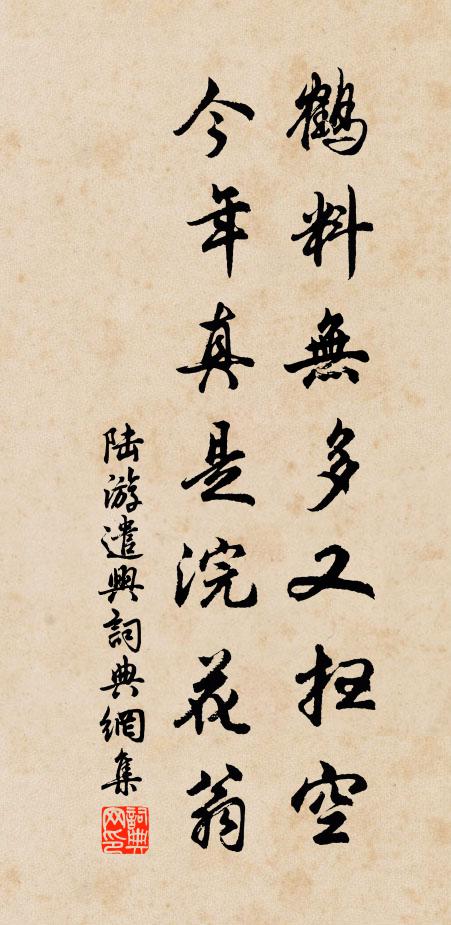 鶴料無多又扫空
今年真是浣花翁
陆游遣興詞典網集
詞典网印